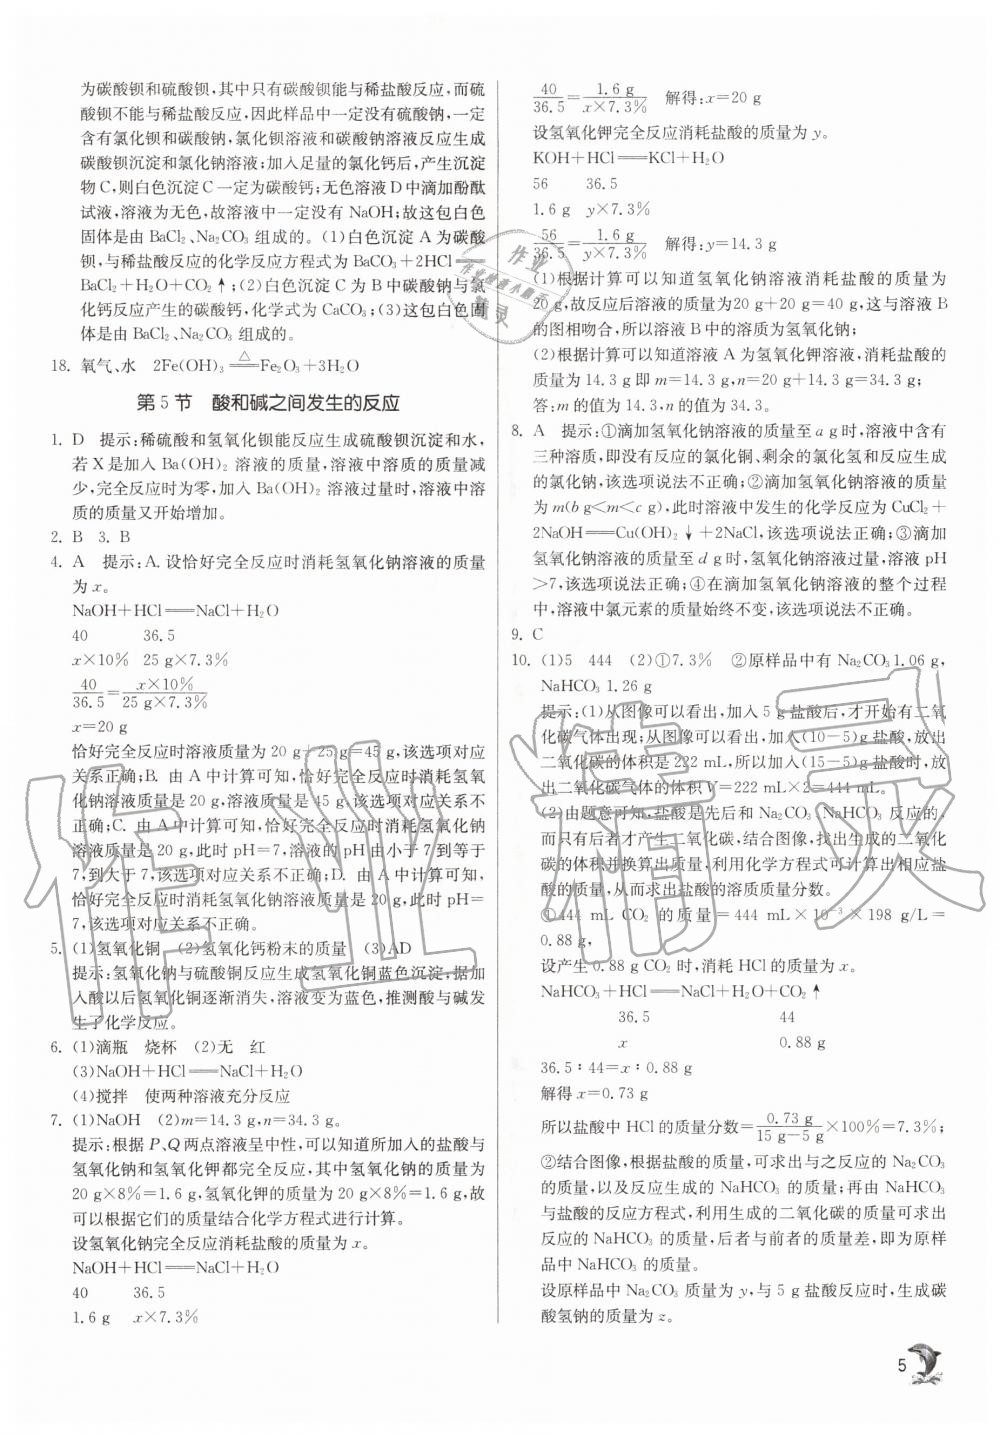 为碳酸钡和硫酸钡,其中只有碳酸钡能与稀盐酸反应,而硫
酸钡不能与稀盐酸反应,因此样品中一定没有硫酸钠,一定
含有氯化钡和碳酸钠,氯化钡溶液和碳酸钠溶液反应生成
碳酸钡沉淀和氯化钠溶液;加入足量的氯化钙后,产生沉淀
物 C,则白色沉淀 C 一定为碳酸钙;无色溶液 D 中滴加酚酞
试液,溶液为无色,故溶液中一定没有 NaOH;故这包白色
固体是由 BaCl₂、Na₂CO₃ 组成的。(1)白色沉淀 A 为碳酸
钡,与稀盐酸反应的化学反应方程式为 BaCO₃+2HCl══
BaCl₂+H₂O+CO₂↑;(2)白色沉淀 C 为 B 中碳酸钠与氯
化钙反应产生的碳酸钙,化学式为 CaCO₃;(3)这包白色固
体是由 BaCl₂、Na₂CO₃ 组成的。
18. 氧气、水 2Fe(OH)₃ ══△ Fe₂O₃+3H₂O
第 5 节 酸和碱之间发生的反应
1. D 提示:稀硫酸和氢氧化钡能反应生成硫酸钡沉淀和水,
若 X 是加入 Ba(OH)₂ 溶液的质量,溶液中溶质的质量减
少,完全反应时为零,加入 Ba(OH)₂ 溶液过量时,溶液中溶
质的质量又开始增加。
2. B 3. B
4. A 提示:A. 设恰好完全反应时消耗氢氧化钠溶液的质量
为 x。
NaOH+HCl══NaCl+H₂O
40 36.5
x×10% 25 g×7.3%
40/36.5=x×10%/25 g×7.3%
x=20 g
恰好完全反应时溶液质量为 20 g+25 g=45 g,该选项对应
关系正确;B. 由 A 中计算可知,恰好完全反应时消耗氢氧
化钠溶液质量是 20 g,溶液质量是 45 g,该选项对应关系不
正确;C. 由 A 中计算可知,恰好完全反应时消耗氢氧化钠
溶液质量是 20 g,此时 pH=7,溶液的 pH 由小于 7 到等于
7,到大于 7,该选项对应关系不正确;D. 由 A 中计算可知,
恰好完全反应时消耗氢氧化钠溶液质量是 20 g,此时 pH=
7,该选项对应关系不正确。
5. (1)氢氧化铜 (2)氢氧化钙粉末的质量 (3)AD
提示:氢氧化钠与硫酸铜反应生成氢氧化铜蓝色沉淀;据加
入酸以后氢氧化铜逐渐消失,溶液变为蓝色,推测酸与碱发
生了化学反应。
6. (1)滴瓶 烧杯 (2)无 红
(3)NaOH+HCl══NaCl+H₂O
(4)搅拌 使两种溶液充分反应
7. (1)NaOH (2)m=14.3 g,n=34.3 g。
提示:根据 P、Q 两点溶液呈中性,可以知道所加入的盐酸与
氢氧化钠和氢氧化钾都完全反应,其中氢氧化钠的质量为
20 g×8%=1.6 g,氢氧化钾的质量为 20 g×8%=1.6 g,故
可以根据它们的质量结合化学方程式进行计算。
设氢氧化钠完全反应消耗盐酸的质量为 x。
NaOH+HCl══NaCl+H₂O
40 36.5
1.6 g x×7.3%
40/36.5=1.6 g/x×7.3% 解得:x=20 g
设氢氧化钾完全反应消耗盐酸的质量为 y。
KOH+HCl══KCl+H₂O
56 36.5
1.6 g y×7.3%
56/36.5=1.6 g/y×7.3% 解得:y=14.3 g
(1)根据计算可以知道氢氧化钠溶液消耗盐酸的质量为
20 g,故反应后溶液的质量为20 g+20 g=40 g,这与溶液 B
的图相吻合,所以溶液 B 中的溶质为氢氧化钠;
(2)根据计算可以知道溶液 A 为氢氧化钾溶液,消耗盐酸的
质量为 14.3 g 即 m=14.3 g,n=20 g+14.3 g=34.3 g;
答:m 的值为 14.3,n 的值为 34.3。
8. A 提示:①滴加氢氧化钠溶液的质量至 a g 时,溶液中含有
三种溶质,即没有反应的氯化铜、剩余的氯化氢和反应生成
的氯化钠,该选项说法不正确;②滴加氢氧化钠溶液的质量
为 m(b g<m<c g),此时溶液中发生的化学反应为 CuCl₂+
2NaOH══Cu(OH)₂↓+2NaCl,该选项说法正确;③滴加
氢氧化钠溶液的质量至 d g 时,氢氧化钠溶液过量,溶液 pH
>7,该选项说法正确;④在滴加氢氧化钠溶液的整个过程
中,溶液中氯元素的质量始终不变,该选项说法不正确。
9. C
10. (1)5 444 (2)①7.3% ②原样品中有 Na₂CO₃ 1.06 g,
NaHCO₃ 1.26 g
提示:(1)从图像可以看出,加入 5 g 盐酸后,才开始有二氧
化碳气体出现;从图像可以看出,加入(10-5)g 盐酸,放出
二氧化碳的体积是 222 mL,所以加入(15-5)g 盐酸时,放
出二氧化碳气体的体积 V=222 mL×2=444 mL。
(2)由题意可知,盐酸是先后和 Na₂CO₃、NaHCO₃ 反应的,
而只有后者才产生二氧化碳,结合图像,找出生成的二氧化
碳的体积并换算出质量,利用化学方程式可计算出相应盐
酸的质量,从而求出盐酸的溶质质量分数。
①444 mL CO₂ 的质量=444 mL×10⁻³×198 g/L=
0.88 g,
设产生 0.88 g CO₂ 时,消耗 HCl 的质量为 x。
NaHCO₃+HCl══NaCl+H₂O+CO₂↑
36.5 44
x 0.88 g
36.5∶44=x∶0.88 g
解得 x=0.73 g
所以盐酸中 HCl 的质量分数=0.73 g/15 g-5 g×100%=7.3%;
②结合图像,根据盐酸的质量,可求出与之反应的 Na₂CO₃
的质量,以及反应生成的 NaHCO₃ 的质量;再由 NaHCO₃
与盐酸的反应方程式,利用生成的二氧化碳的质量可求出
反应的 NaHCO₃ 的质量,后者与前者的质量差,即为原样
品中 NaHCO₃ 的质量。
设原样品中 Na₂CO₃ 质量为 y,与 5 g 盐酸反应时,生成碳
酸氢钠的质量为 z。
5
作业精灵